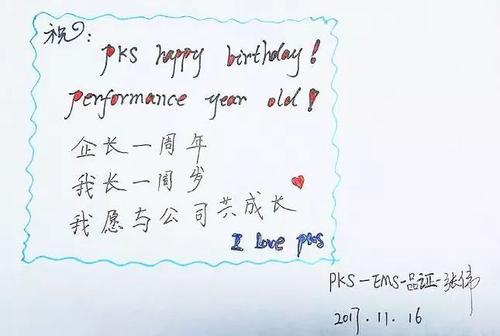 祝:
PKS happy birthday!
performance year old!
企长一周年
我长一周岁
我愿与公司共成长
I Love pks
PKS-EMS-品证-张伟
2017.11.16